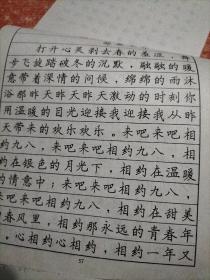 打开心灵剥去春的羞涩,舞
步飞旋踏破冬的沉默,融融的暖
意带着深情的问候,绵绵的雨沐
浴那昨天昨天昨天激动的时刻你
用温暖的目光迎接我迎接我从昨
天带来的欢乐欢乐。来吧来吧相
约九八,来吧来吧相约九八,相
约在银色的月光下,相约在温暖
的情意中;来吧来吧相约九八,
来吧来吧相约九八,相约在甜美
春风里,相约那永远的青春年
。心相约心相约,相约一年又
57